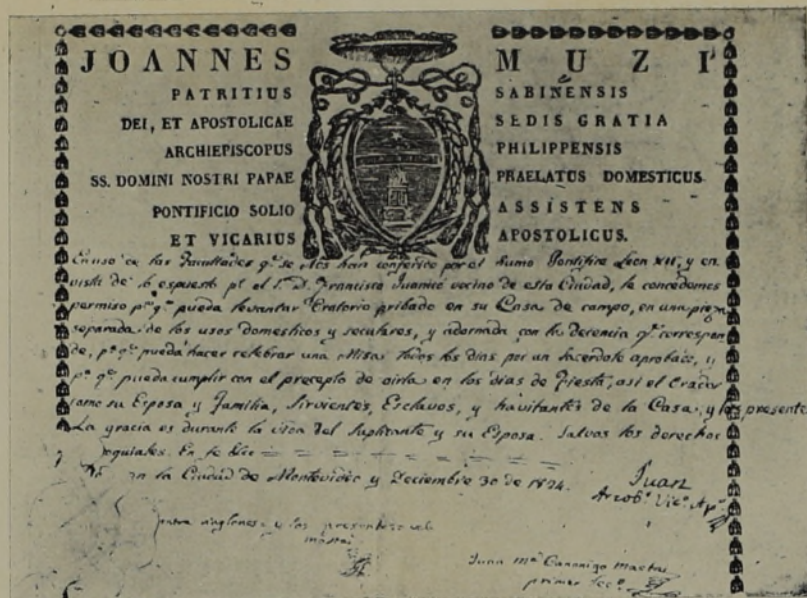 JOANNES MUZI
PATRITIUS SABINENSIS
DEI, ET APOSTOLICAE SEDIS GRATIA
ARCHIEPISCOPUS PHILIPPENSIS
SS. DOMINI NOSTRI PAPAE PRAELATUS DOMESTICUS
PONTIFICIO SOLIO ASSISTENS
ET VICARIUS APOSTOLICUS.
En uso de las Facultades q.e se Nos han conferido por el Sumo Pontifice Leon XII, y en
vista de lo espuesto p.r el S.r D. Francisco Juanicó vecino de esta Ciudad, le concedemos
permiso p.a q.e pueda levantar Oratorio pribado en su Casa de campo, en una pieza
separada de los usos domesticos y seculares, y adornada con la decencia q.e correspon
de, p.a q.e pueda hacer celebrar una Misa todos los dias por un Sacerdote aprobado, y
p.a q.e pueda cumplir con el precepto de oirla en los dias de Fiesta, asi el Orador
como su Esposa y Familia, Sirvientes, Esclavos, y havitantes de la Casa, y los presentes
La gracia es durante la vida del Suplicante y su Esposa. Salvos los derechos
En
en la Ciudad de Montevideo y Deciembre 30 de 1824.
Juan
Arzob.o Vic.o Ap.o
y los presentes vale
Mastai
Juan M.a Canonigo Mastai
primer Sec.o